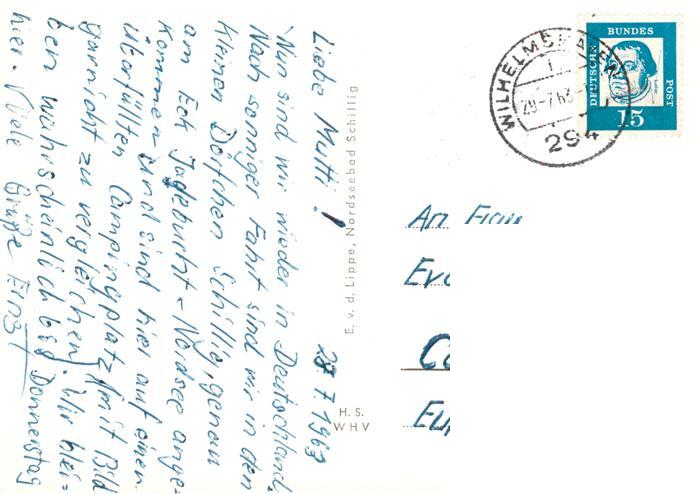 28.7.1963
Liebe Mutti!
Nun sind wir wieder in Deutschland.
Nach sonniger Fahrt sind wir in den
kleinen Dörfchen Schillig, genau
am Eck Jadebucht - Nordsee ange-
kommen und sind hier auf einen
überfüllten Campingplatz (mit Bild
garnicht zu vergleichen). Wir blei=
ben wahrscheinlich bis Donnerstag
hier. Viele Grüße Ernst
E. v. d. Lippe, Nordseebad Schillig
H. S.
WHV
DEUTSCHE BUNDESPOST
15
WILHELMSHAVEN
29-7.63
294
An Frau